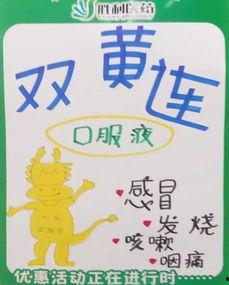 胜利医药
双黄连
口服液
感冒
发烧
咳嗽
咽痛
优惠活动正在进行时······